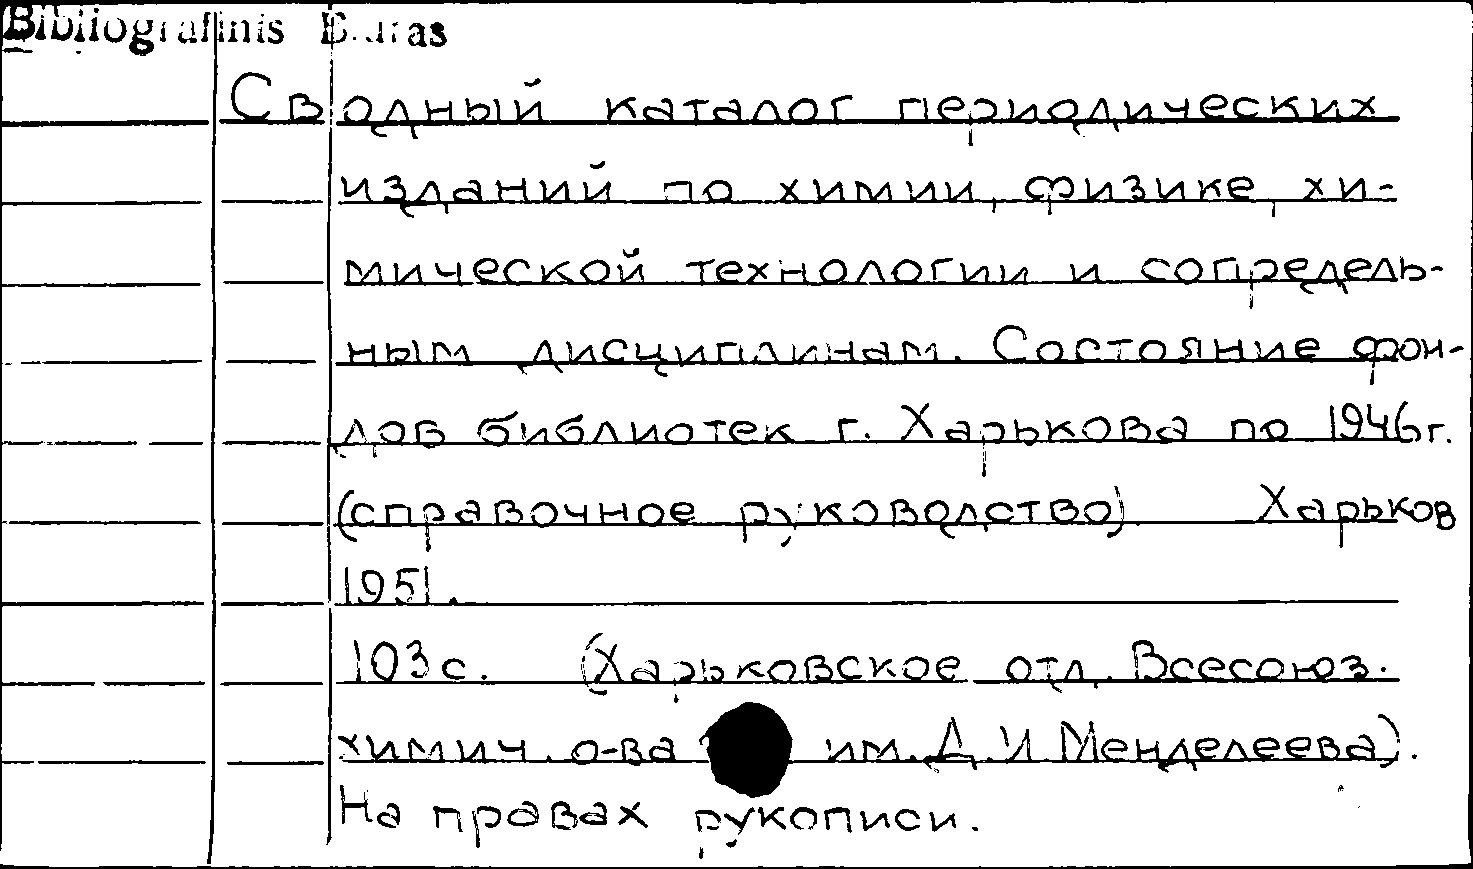 Bibliografinis Biuras
Сводный каталог периодических
изданий по химии, физике, хи-
мической технологии и сопредель-
ным дисциплинам. Состояние фон-
дов библиотек г. Харькова по 1946г.
(справочное руководство). Харьков
1951.
103с. (Харьковское отд. Всесоюз.
химич. о-ва им. Д.И Менделеева).
На правах рукописи.